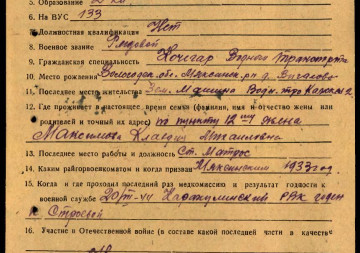 5. Образование
6. На ВУС 133
7. Должностная квалификация Нет
8. Военное звание Рядовой
9. Гражданская специальность Кочегар Водного Транспорта
10. Место рождения Вологодск. обл. Мяксинск. р-н д.
11. Последнее место жительства
12. Где проживает в настоящее время семья (фамилия, имя и отчество жены или
родителей и точный их адрес) по пункту 12 жена
Максимова Клавдия
13. Последнее место работы и должность Ст. Матрос
14. Каким райгорвоенкоматом и когда призван Мяксинским 1933 год
15. Когда и где проходил последний раз медкомиссию и результат годности к
военной службе 20/III-44 РВК годен
к Строевой
16. Участие в Отечественной войне (в составе какой последней части в качестве